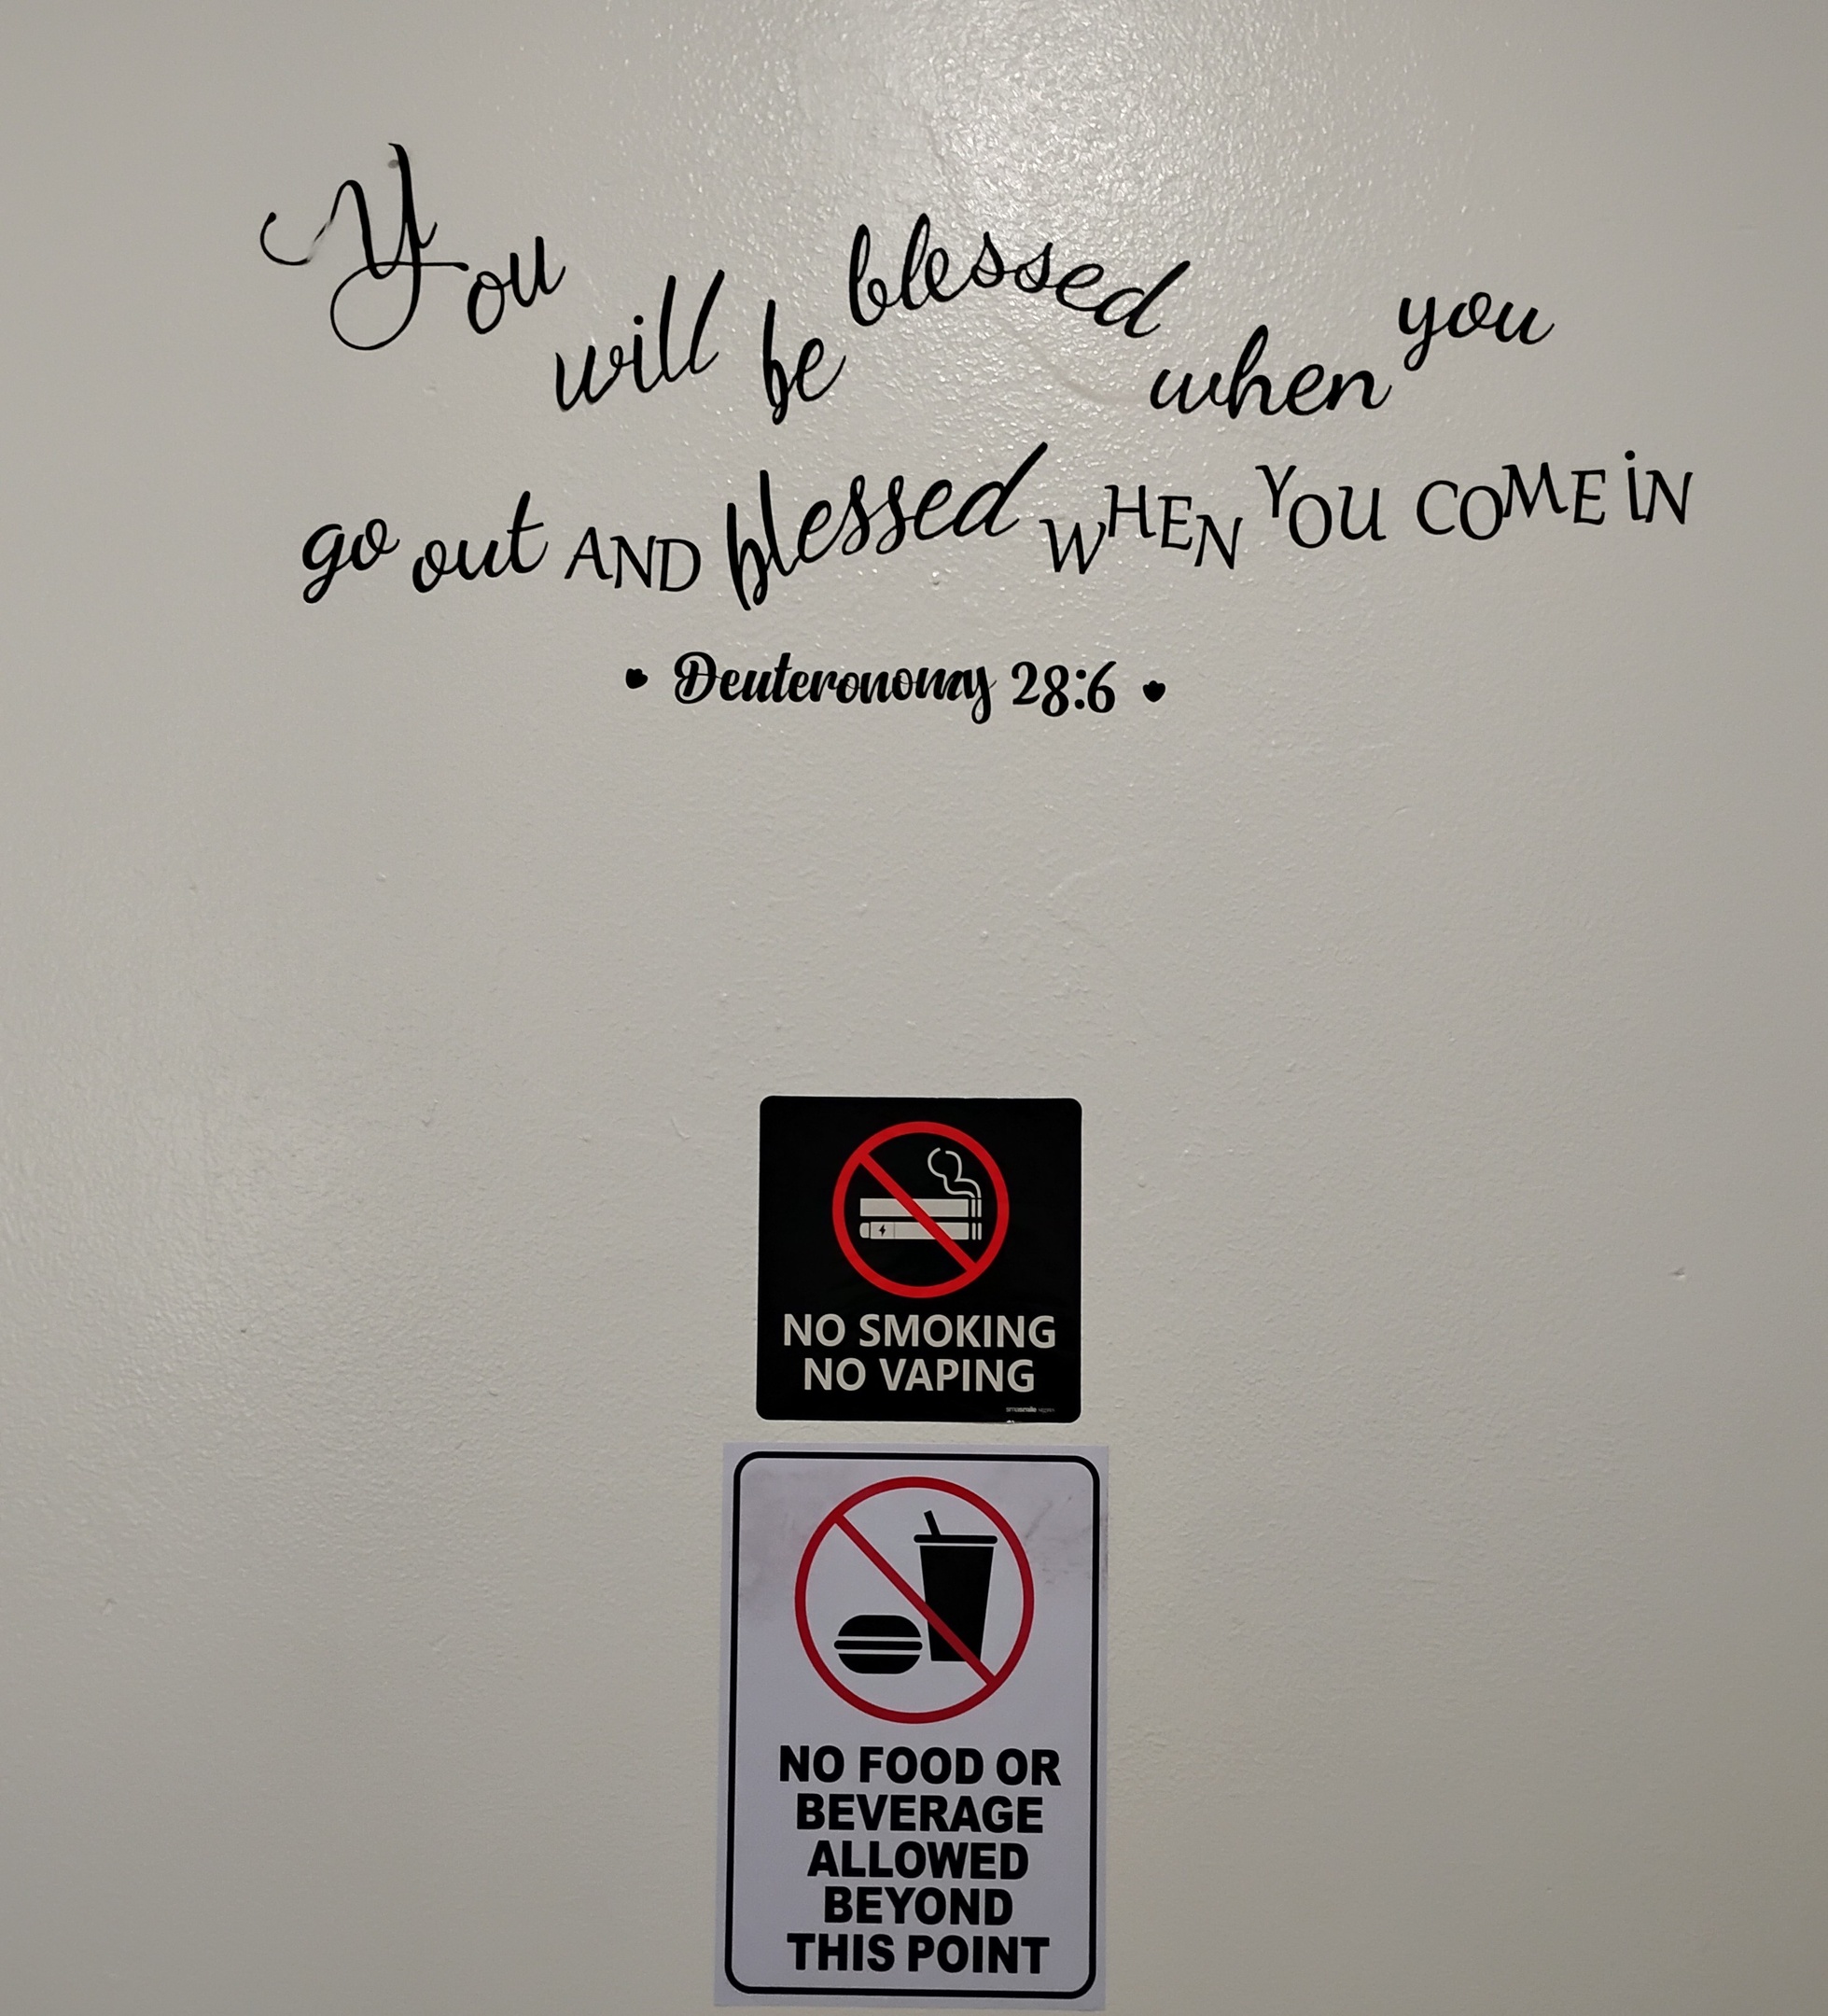 You will be blessed when you
go out AND blessed WHEN YOU COME iN
• Deuteronomy 28:6 •
NO SMOKING
NO VAPING
NO FOOD OR
BEVERAGE
ALLOWED
BEYOND
THIS POINT